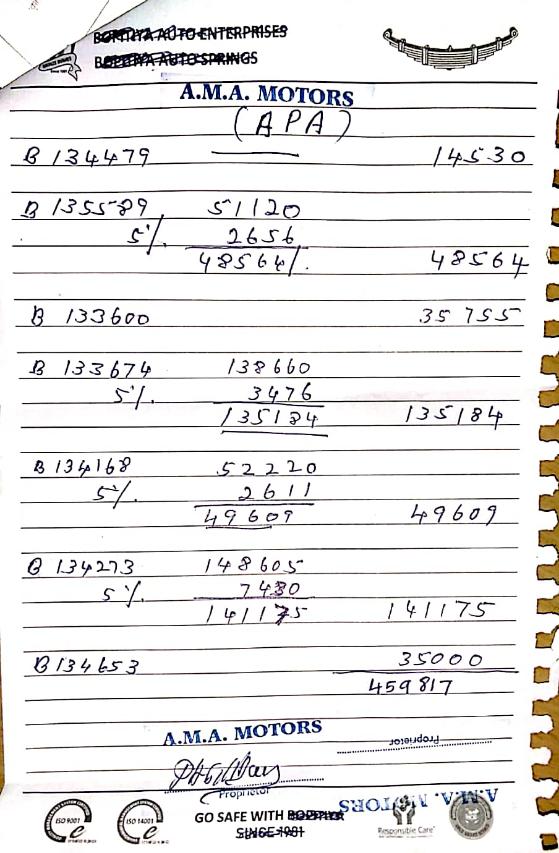 AUTO ENTERPRISES
AUTO SPRINGS
A.M.A. MOTORS
(APA)
B 134479 14530
B 135589 51120
5% 2656
48564/. 48564
B 133600 35755
B 133674 138660
5% 3476
135184 135184
B 134168 52220
5% 2611
49609 49609
B 134273 148605
5% 7430
141175 141175
B 134653 35000
459817
A.M.A. MOTORS
Proprietor
Proprietor
A.M.A. MOTORS
GO SAFE WITH
SINCE 1981
ISO 9001
ISO 14001
Responsible Care